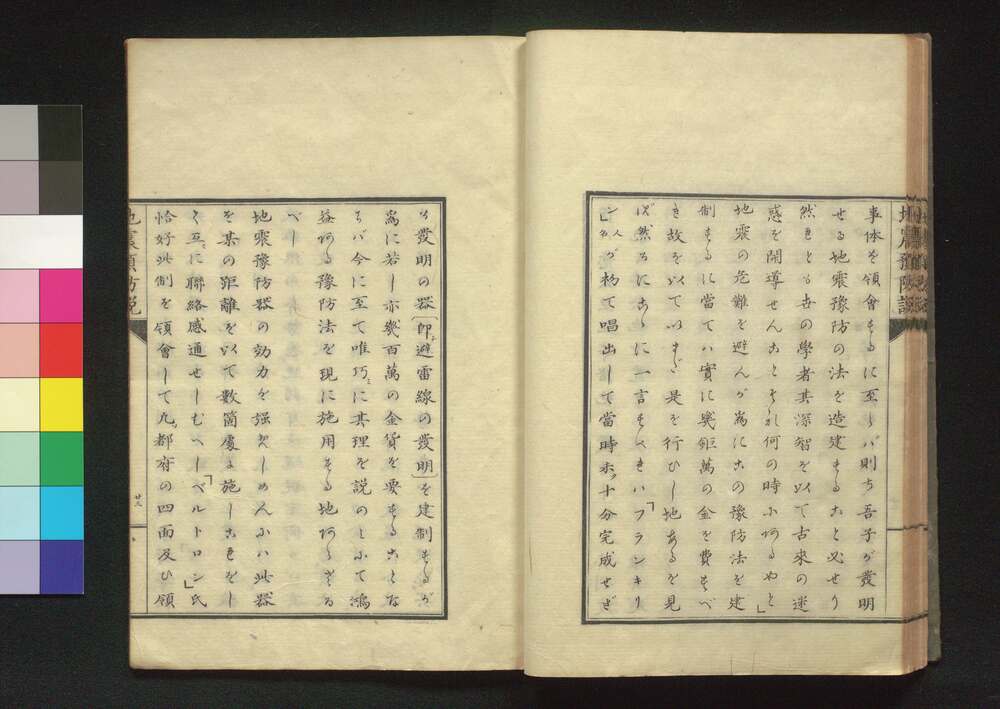 地震預防説
事体を領會するに至らバ則ち吾子が發明
せる地震豫防の法を造建すること必せり
然れども世の學者其深智を以て古來の迷
惑を開導せんことそれ何の時にあるやと」
地震の危難を避んが為にこの豫防法を建
制するに當てハ實に幾鉅萬の金を費すべ
き故を以ていまだ是を行ひし地あるを見
ず然るにこゝに一言すべきハ「フランキリ
ン」人名が初て唱出して當時未ダ十分完成せざ
る發明の器〔即チ避雷線の發明〕を建制するが
為に若し亦幾百萬の金貨を要することな
らバ今に至て唯巧ミに其理を説のミにて鴻
益ある豫防法を現に施用する地あらざる
べし
地震豫防器の効力を強大ならしめんにハ此器
を某の距離を以て數箇處に施しこれをし
く互ニに聯絡感通せしむべし「ベルトロン」氏
恰好此制を領會して凡ソ都府の四面及ひ領
地震預防説
廿三